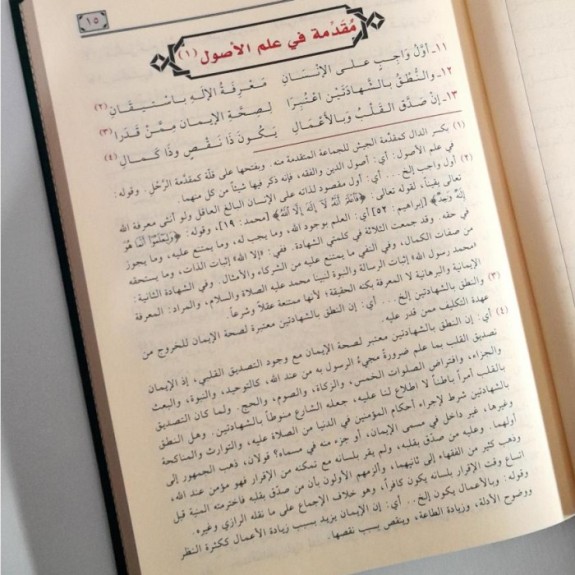 ١٥
مُقَدِّمة في علم الأصول (١)
١١- أوَّلُ وَاجِبٍ عَلَى الإِنْسَانِ مَعْرِفَةُ الإِلَهِ بِاسْتِيقَانِ (٢)
١٢- والنُّطْقُ بِالشَّهَادَتَيْنِ اعْتُبِرَا لِصِحَّةِ الإِيمَانِ مِمَّنْ قَدَرَا (٣)
١٣- إِنْ صَدَّقَ القَلْبُ وَبِالأَعْمَالِ يَكُونُ ذَا نَقْصٍ وَذَا كَمَالِ (٤)
(١) بكسر الدال كمقدِّمة الجيش للجماعة المتقدمة منه. وبفتحها على قلّة كمقدمة الرَّحْلِ. وقوله:
في علم الأصول: أي: أصول الدين والفقه، فإنه ذكر فيها شيئاً من كل منهما.
(٢) أول واجب إلخ... أي: أول مقصود لذاته على الإنسان البالغ العاقل ولو أنثى معرفة الله
تعالى يقيناً، لقوله تعالى: ﴿فَاعْلَمْ أَنَّهُ لَا إِلَهَ إِلَّا اللَّهُ﴾ [محمد: ١٩]، وقوله: ﴿وَلِيَعْلَمُوا أَنَّمَا هُوَ
إِلَهٌ وَاحِدٌ﴾ [إبراهيم: ٥٢] أي: العلم بوجود الله، وما يجب له، وما يمتنع عليه، وما يجوز
في حقه. وقد جمعت الثلاثة في كلمتي الشهادة. ففي: «إلا الله» إثبات الذات، وما يستحقه
من صفات الكمال، وفي النفي ما يمتنع عليه من الشركاء والأمثال. وفي الشهادة الثانية:
«محمد رسول الله» إثبات الرسالة والنبوة لنبينا محمد عليه الصلاة والسلام، والمراد: المعرفة
الإيمانية والبرهانية لا المعرفة بكنه الحقيقة؛ لأنها ممتنعة عقلاً وشرعاً.
(٣) والنطق بالشهادتين إلخ... أي: إن النطق بالشهادتين معتبرة لصحة الإيمان للخروج من
عهدة التكليف ممن قدر عليه.
(٤) أي: إن النطق بالشهادتين معتبر لصحة الإيمان مع وجود التصديق القلبي، إذ الإيمان
تصديق القلب بما علم ضرورةً مجيءُ الرسول به من عند الله، كالتوحيد، والنبوة، والبعث
والجزاء، وافتراض الصلوات الخمس، والزكاة، والصوم، والحج. ولما كان التصديق
بالقلب أمراً باطناً لا اطلاع لنا عليه، جعله الشارع منوطاً بالشهادتين. وهل النطق
بالشهادتين شرط لإجراء أحكام المؤمنين في الدنيا من الصلاة عليه، والتوارث والمناكحة
وغيرها، غير داخل في مسمى الإيمان، أو جزء منه في مسماه؟ قولان، ذهب الجمهور إلى
أولهما. وعليه من صدَّق بقلبه، ولم يقر بلسانه مع تمكنه من الإقرار فهو مؤمن عند الله،
وذهب كثير من الفقهاء إلى ثانيهما، وألزمهم الأولون بأن من صدق بقلبه فاخترمته المنية قبل
اتساع وقت الإقرار بلسانه يكون كافراً، وهو خلاف الإجماع على ما نقله الرازي وغيره.
وقوله: وبالأعمال يكون إلخ.. أي: إن الإيمان يزيد بسبب زيادة الأعمال ككثرة النظر
ووضوح الأدلة، وزيادة الطاعة، وينقص بسبب نقصها.